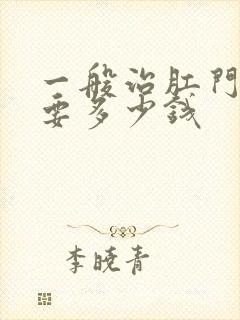 一般治肛門
要多少錢
李曉青